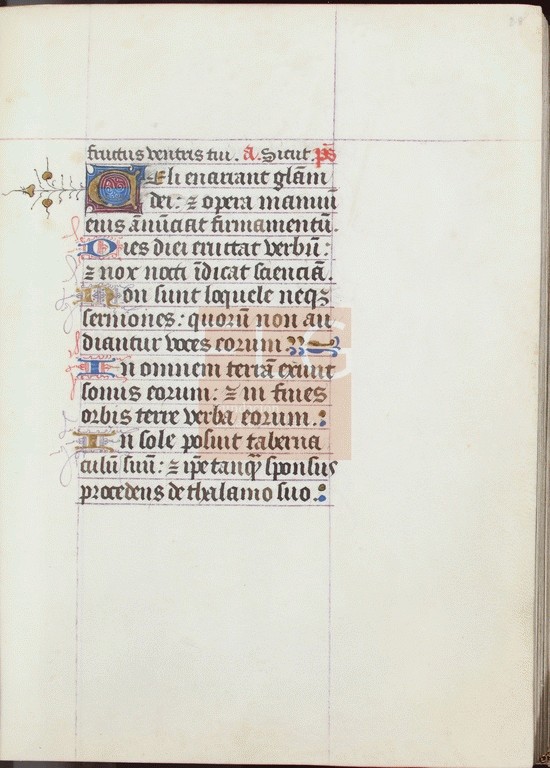 fructus ventris tui. a. Sicut. ps
Celi enarrant glãm
dei: ⁊ opera manuū
eius ãnũciat firmamentũ.
Dies diei eructat verbũ:
⁊ nox nocti ĩdicat scienciã.
Non sunt loquele neqꝫ
sermones: quorũ non au
diantur voces eorum
In omnem terrã exiuit
sonus eorum: ⁊ in fines
orbis terre verba eorum.
In sole posuit taberna
culũ suũ: ⁊ ip̃e tanqꝫ sponsus
procedens de thalamo suo.